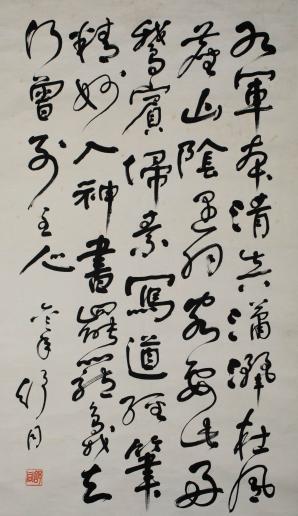 右軍本清真瀟灑在風
塵山陰遇羽客要此好
鵝賓掃素寫道經筆
精妙入神書罷籠鵝去
何曾別主人
舒同